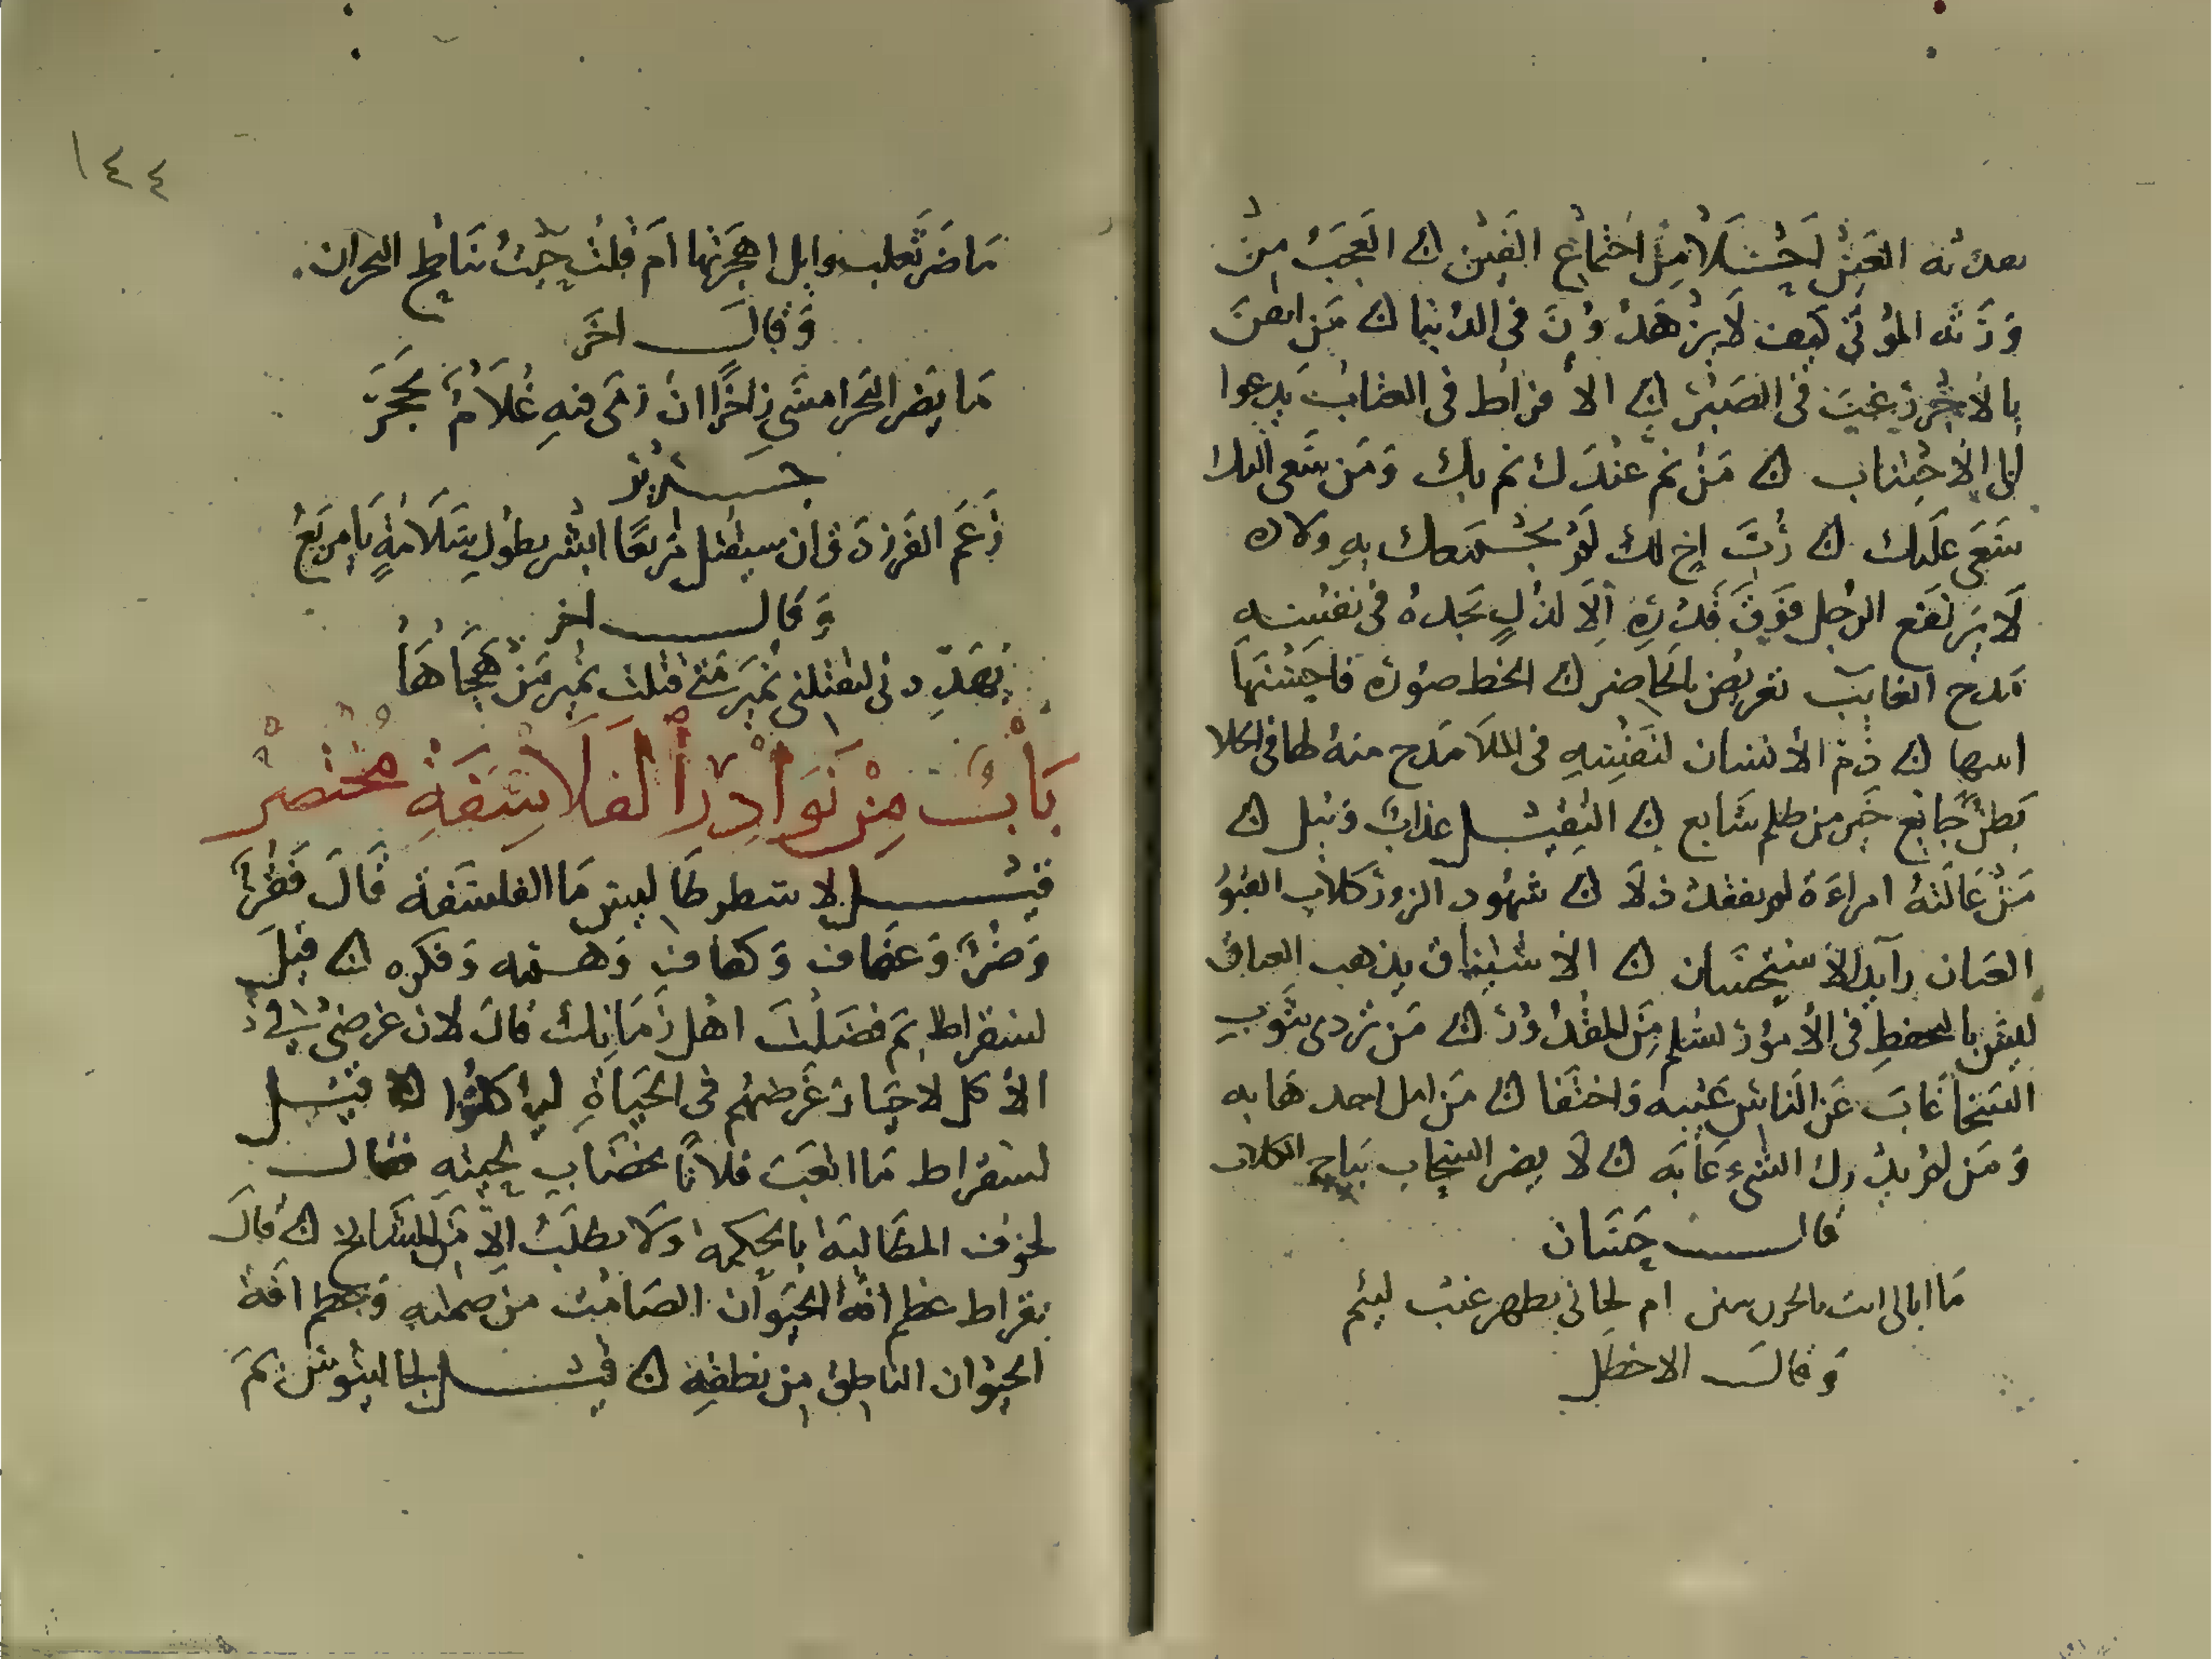 العيش احتمالا من اجتماع الفين ۞ العجب من
ورثه الموتى كيف لا يزهدون في الدنيا ۞ من ايقن
بالاجر رغب في الصبر ۞ الافراط في العتاب يدعوا
الى الاجتناب ۞ من نم عندك نم بك ومن سعى اليك
سعى عليك ۞ رب اخ لك لم تجمعك به ولاده
لا يرتفع الرجل فوق قدره الا لذل يجده في نفسه
مدح الغايب تعريض بالحاضر ۞ الخط صوره فاحسنها
۞ ذم الانسان لنفسه في الملا مدح منه لها في الخلا
بطن جايع خير من ظلم شايع ۞ الثقيل عذاب وبيل ۞
من عالته امراءة لم يفقد ذلا ۞ شهود الزور كلاب
رايد الاستحسان ۞ الاشتياق يذهب
ليس بالحفظ في الامور تسلم من المقدور ۞ من تردى بثوب
السخا غاب عن الناس عيبه واختفا ۞ من امل احد هابه
ومن لم يدرك الشيء عابه ۞ لا يضر السحاب نباح الكلاب
قال حسان
ما ابالي انب بالحزن تيس ام لحاني بظهر غيب لئيم
وقال الاخطل
١٤٤
ما ضر تغلب وايل اهجوتها ام بلت حيث تناطح البحران
وقال اخر
ما يضر البحر امسى زاخرا ان رمى فيه غلام بحجر
جرير
زعم الفرزدق ان سيقتل مربعا ابشر بطول سلامة يا مربع
وقال اخر
يهددني ليقتلني نمير متى قتلت نمير من هجاها
باب من نوادر الفلاسفة مختصر
قيل لارسطوطاليس ما الفلسفة قال فقر
وصبر وعفاف وكفاف وهمه وفكره ۞ قيل
لسقراط بم فضلت اهل زمانك قال لان غرضي في
الاكل لاحيا وغرضهم في الحياة لياكلوا ۞ قيل
لسقراط ما اتعب فلانا بخضاب لحيته فقال
لخوف المطالبة بالحكمه ولا يطلب الا من المشايخ ۞ قال
بقراط عظم افة الحيوان الصامت من صمته وعظم افة
الحيوان الناطق من نطقه ۞ قيل لجالينوس بم